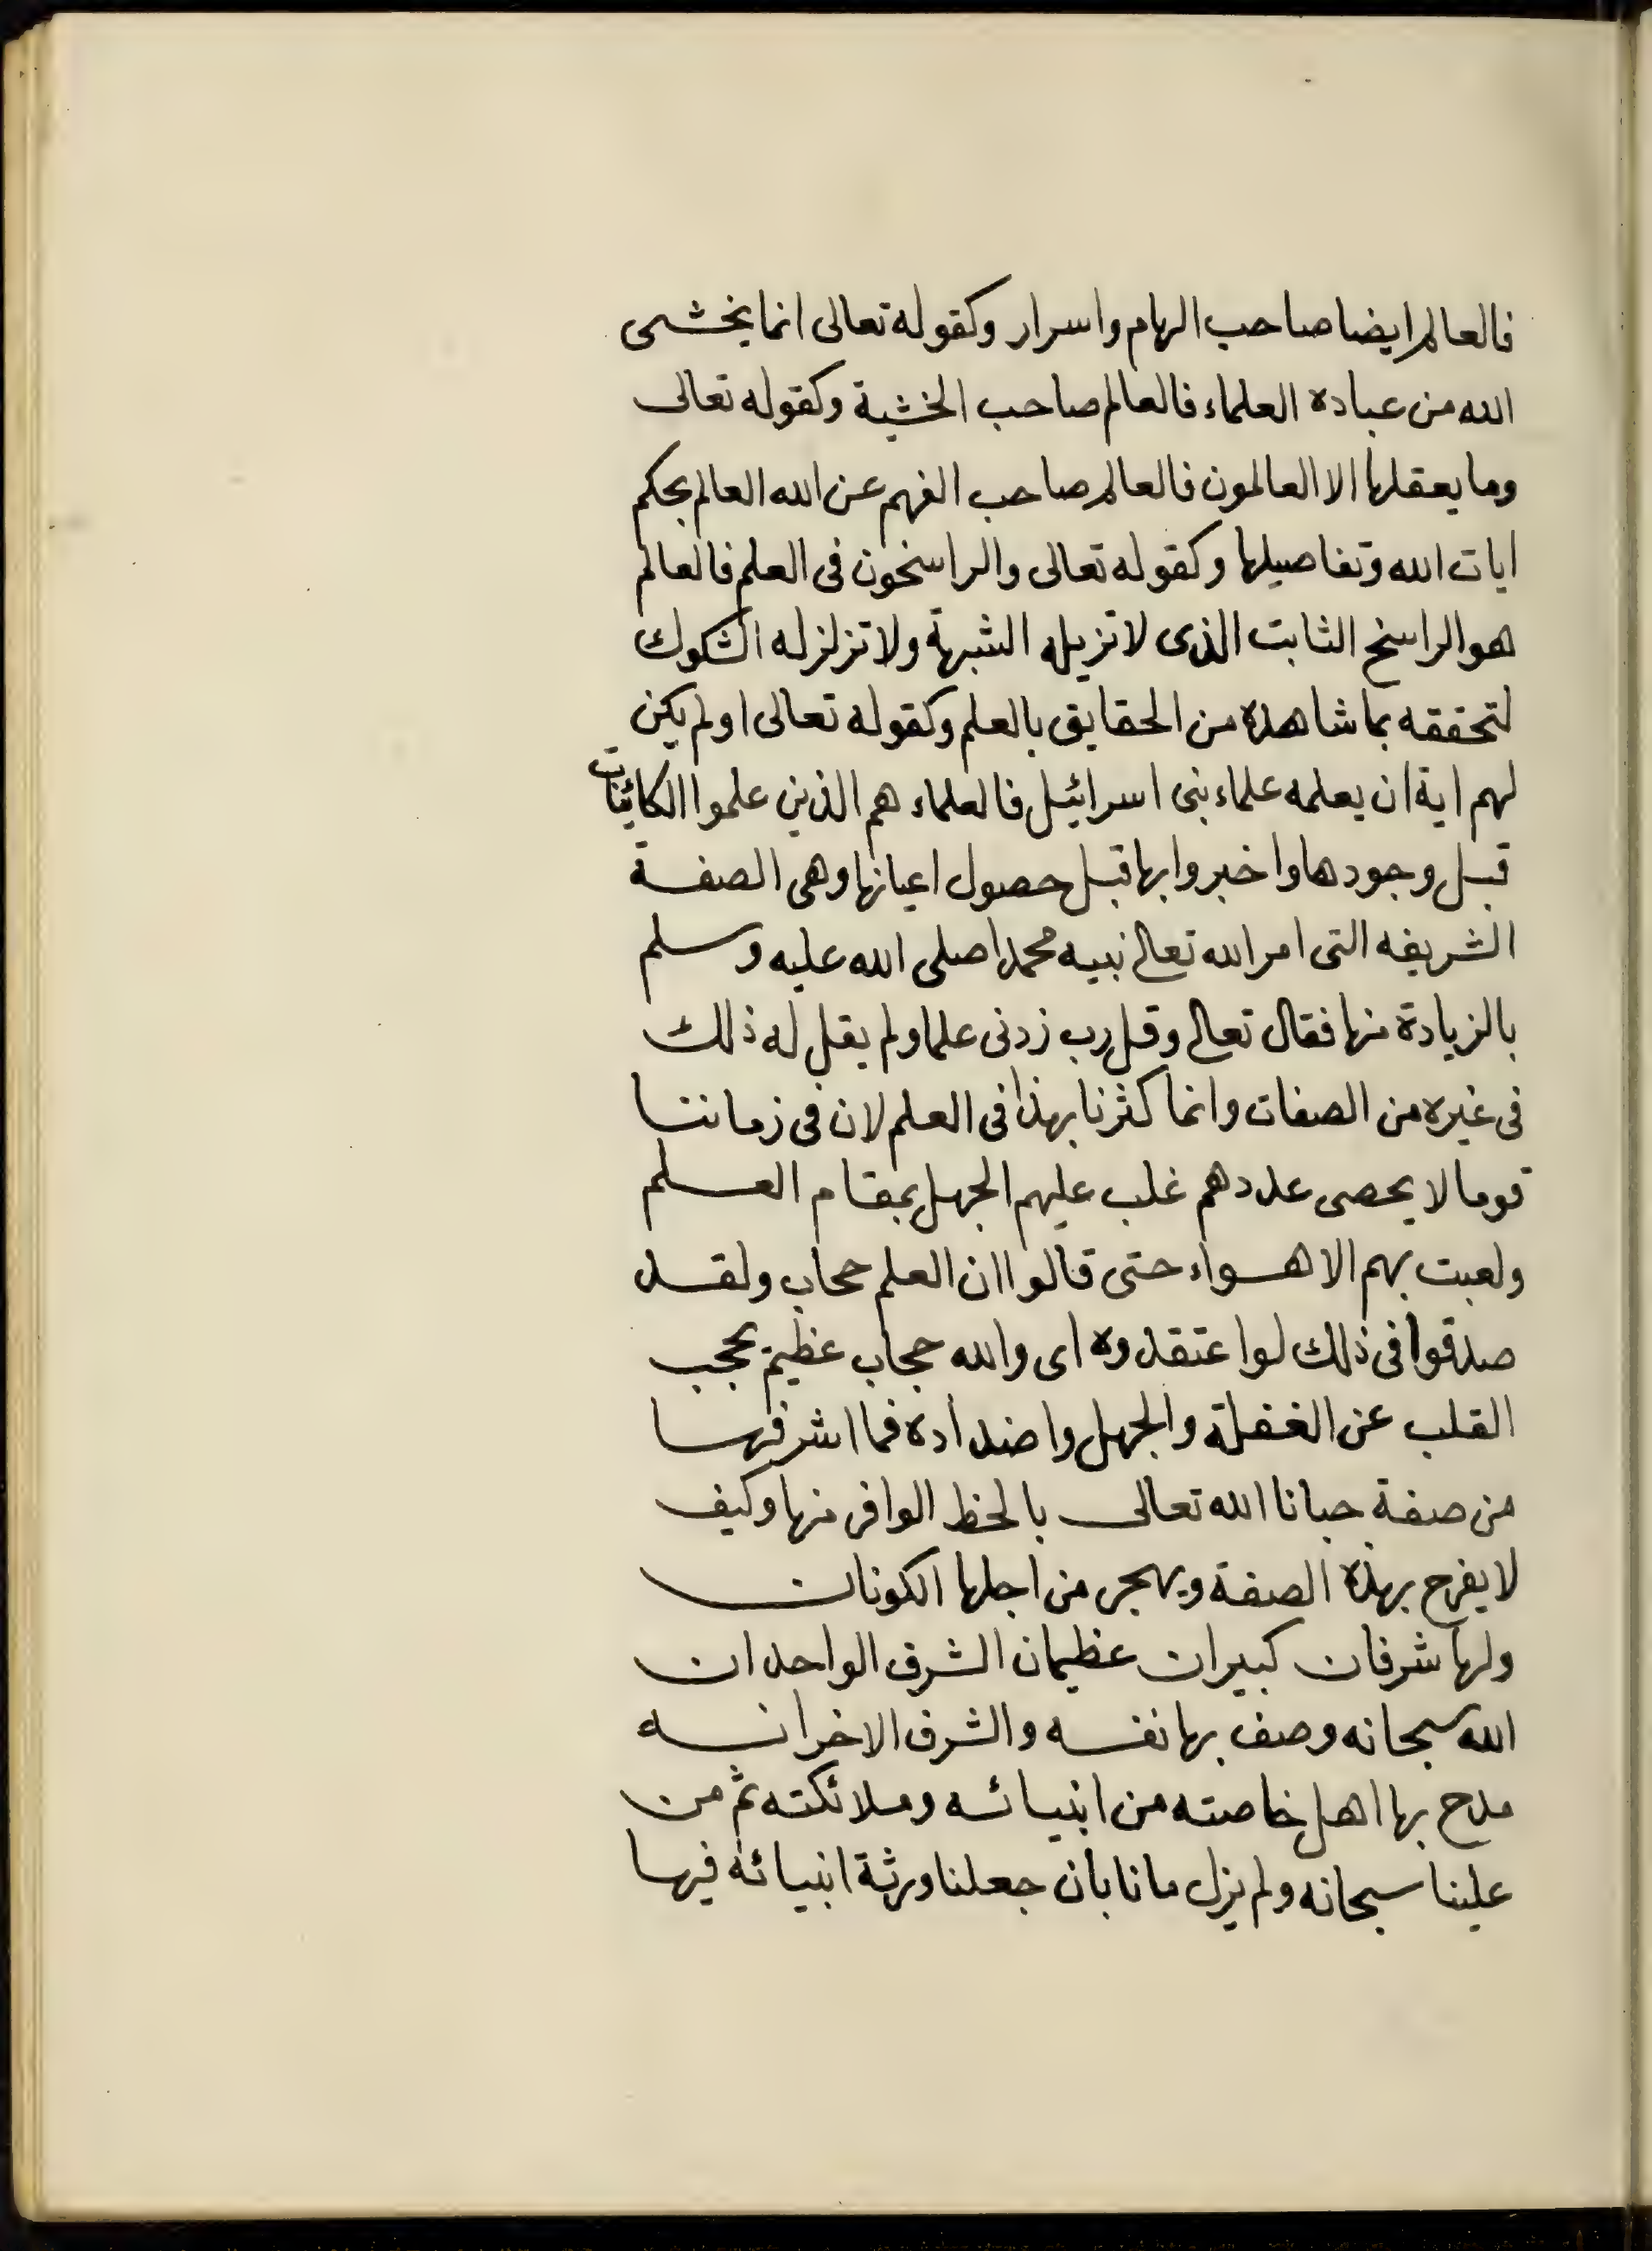 فالعالم ايضا صاحب الهام واسرار وكقوله تعالى انما يخشى
الله من عباده العلماء فالعالم صاحب الخشية وكقوله تعالى
وما يعقلها الا العالمون فالعالم صاحب الفهم عن الله العالم بحكم
ايات الله وتفاصيلها وكقوله تعالى والراسخون فى العلم فالعالم
هو الراسخ الثابت الذى لا تزيله الشبهة ولا تزلزله الشكوك
لتحققه بما شاهده من الحقايق بالعلم وكقوله تعالى اولم يكن
لهم اية ان يعلمه علماء بنى اسرائيل فالعلماء هم الذين علموا الكائينات
قبل وجودها واخبروا بها قبل حصول اعيانها وهى الصفة
الشريفه التى امر الله تعالى نبيه محمدا صلى الله عليه وسلم
بالزيادة منها فقال تعالى وقل رب زدنى علما ولم يقل له ذلك
فى غيره من الصفات وانما كثرنا بهذا فى العلم لان فى زماننا
قوما لا يحصى عددهم غلب عليهم الجهل بمقام العلم
ولعبت بهم الاهواء حتى قالوا ان العلم حجاب ولقد
صدقوا فى ذلك لو اعتقدوه اى والله حجاب عظيم يحجب
القلب عن الغفلة والجهل واضداده فما اشرفها
من صفة حبانا الله تعالى بالحظ الوافر منها وكيف
لا يفرح بهذه الصفة ويهجر من اجلها الكونان
ولها شرفان كبيران عظيمان الشرف الواحد ان
الله سبحانه وصف بها نفسه والشرف الاخر انه
مدح بها اهل خاصته من انبيائه وملائكته ثم من
علينا سبحانه ولم يزل مانا بان جعلنا ورثة انبيائه فيها